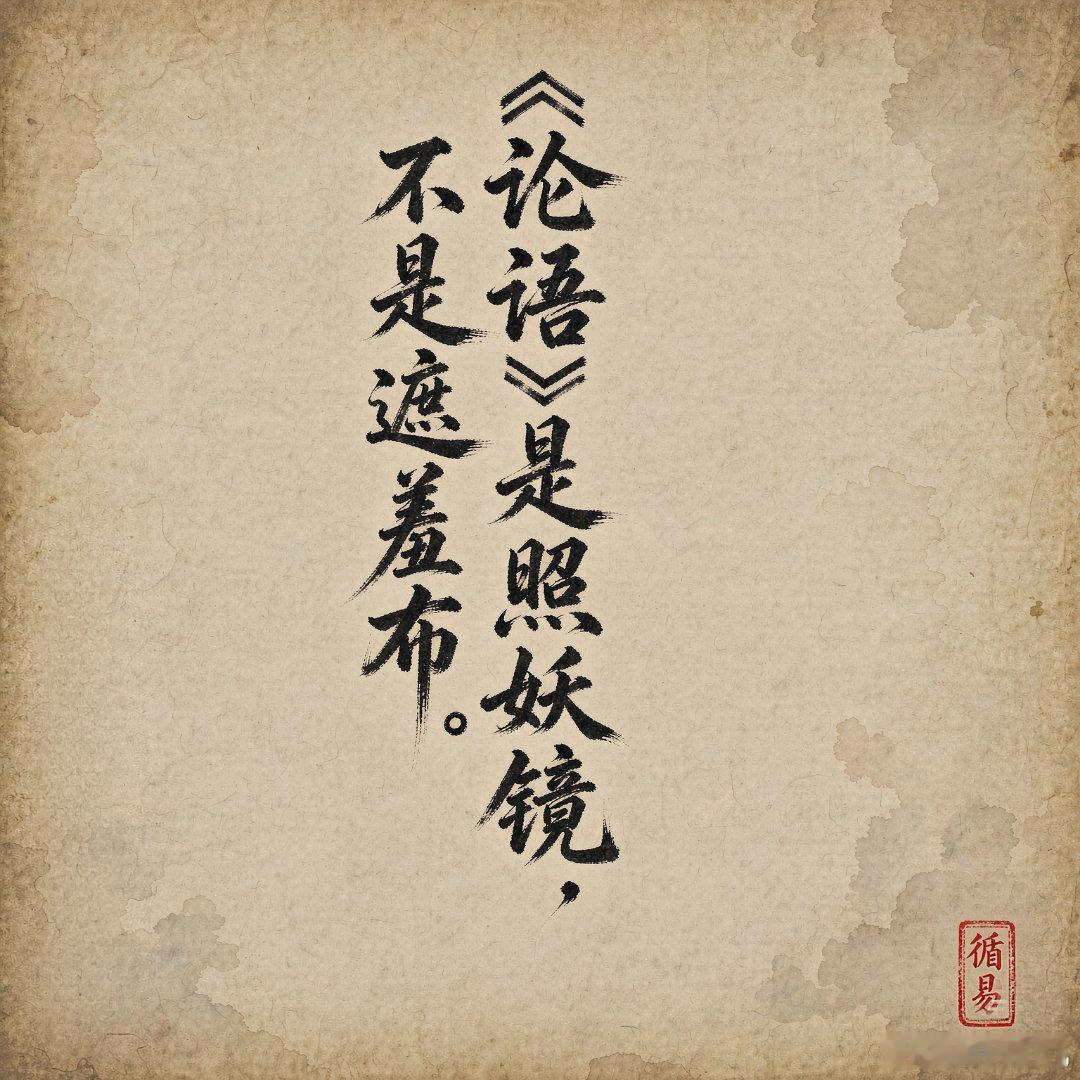 《论语》是照妖镜，
不是遮羞布。
循易